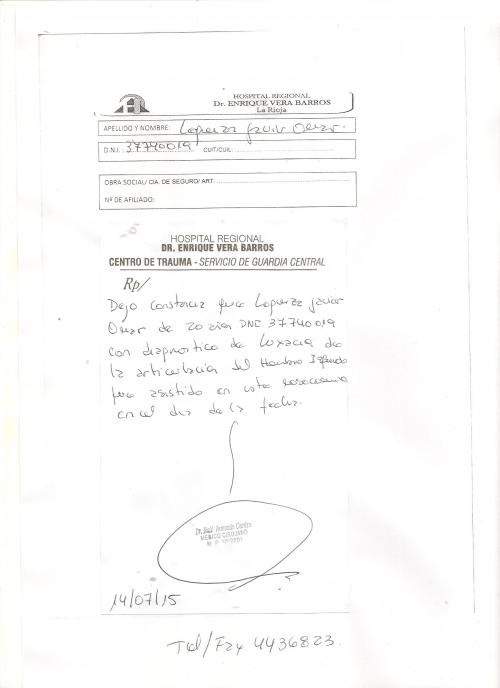 HOSPITAL REGIONAL
Dr. ENRIQUE VERA BARROS
La Rioja
APELLIDO Y NOMBRE: Javier Omar.
D.N.I.: 37740019 CUIT/CUIL:
OBRA SOCIAL/ CIA. DE SEGURO/ ART
Nº DE AFILIADO:
HOSPITAL REGIONAL
DR. ENRIQUE VERA BARROS
CENTRO DE TRAUMA - SERVICIO DE GUARDIA CENTRAL
Rp/
Dejo constancia que Javier
Omar de 20 años DNI 37740019
con diagnostico de luxacion de
la articulación del Hombro Izquierdo
fue asistido en este nosocomio
en el dia de la fecha.
Armando
MEDICO CIRUJANO
M. P.
14/07/15
Tel/Fax 4436823.